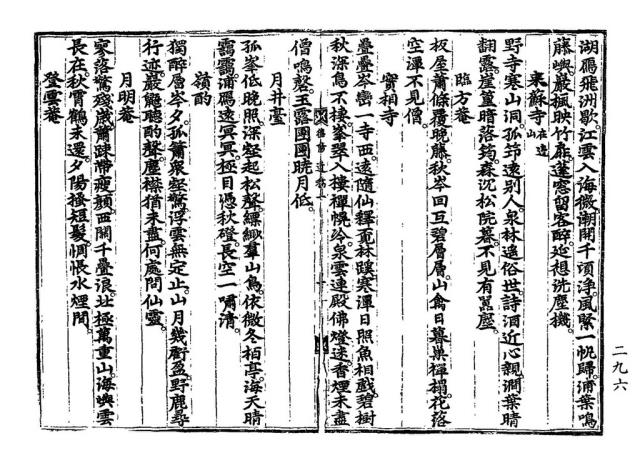 湖鴈飛洲歇江雲入海微潮開千頃淨風緊一帆歸浦葉鳴
藤嶼巖楓映竹扉蓬窓留客醉遊想洗塵機
來蘇寺 在邊山
野寺寒山洞孤筇遠別人泉林遙俗世詩酒近心親澗葉晴
翻露崖篁暗落筠森沉松院暮不見有囂塵
臨方庵
板屋蕭條覆晩藤秋岑回互碧層層山禽日暮巢禪榻花落
空渾不見僧
實相寺
疊疊岑巒一寺西遠隨仙釋覓林蹊寒渾日照魚相戱碧樹
秋深鳥不棲峯翠入樓禪幌冷泉雲連殿佛燈迷香煙未盡
僧鳴磬玉露團團曉月低
月井臺
孤峯低晩照深壑起松聲縹緲羣山鳥依微冬栢亭海天晴
靄靄浦鴈遠冥冥極目憑秋磴長空一嘯淸
嶺酌
獨醉層岑夕孤簫衆壑驚浮雲無定止山月幾虧盈野鹿尋
行迹巖鼯聽酌聲塵襟猶未盡何處問仙靈
月明庵
寥落驚殘歲蕭疎帶瘦顔西關千疊浪北極萬重山海嶼雲
長在秋霄鶴未還夕陽搔短髮惆悵水煙間
登雲庵
二九六